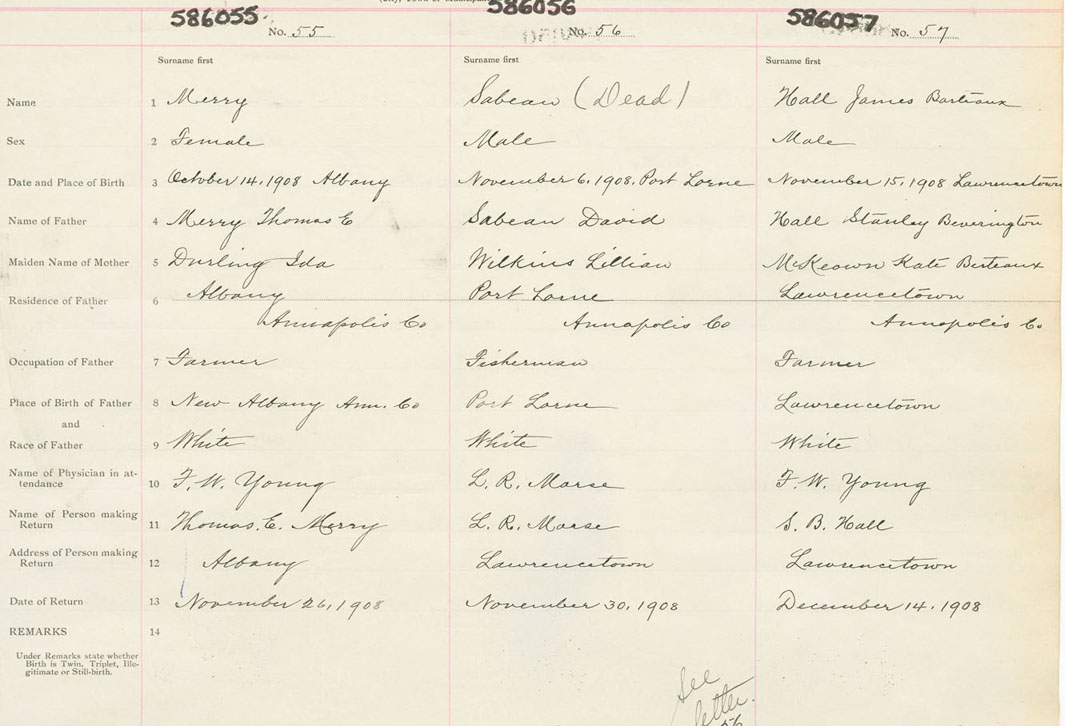 586055
586056
586057
No. 55
No. 56
No. 57
Surname first
Surname first
Surname first
Name 1 Merry Sabean (Dead) Hall James Barteaux
Sex 2 Female Male Male
Date and Place of Birth 3 October 14, 1908 Albany November 6, 1908. Port Lorne November 15, 1908 Lawrencetown
Name of Father 4 Merry Thomas E Sabean David Hall Stanley Beverington
Maiden Name of Mother 5 Durling Ida Wilkins Lillian McKeown Kate Berteaux
Residence of Father 6 Albany Port Lorne Lawrencetown
Annapolis Co Annapolis Co Annapolis Co
Occupation of Father 7 Farmer Fisherman Farmer
Place of Birth of Father 8 New Albany Ann. Co Port Lorne Lawrencetown
and
Race of Father 9 White White White
Name of Physician in at-
tendance 10 F. W. Young L. R. Morse F. W. Young
Name of Person making
Return 11 Thomas. E. Merry L. R. Morse S. B. Hall
Address of Person making
Return 12 Albany Lawrencetown Lawrencetown
Date of Return 13 November 26, 1908 November 30, 1908 December 14. 1908
REMARKS 14
Under Remarks state whether
Birth is Twin, Triplet, Ille-
gitimate or Still-birth.
See
letter.
56